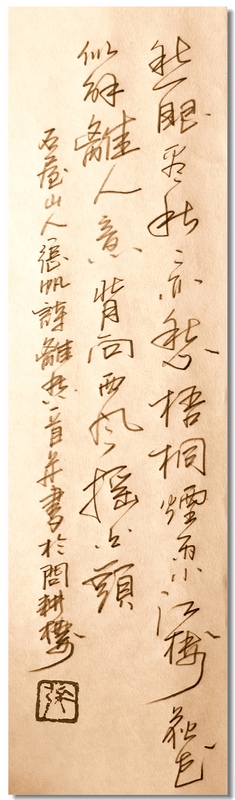 愁眼看秋秋亦愁梧桐煙江樓花
似解離人意背向西風搖白頭
石屋山人張帆離愁一首并書於問耕樓
張